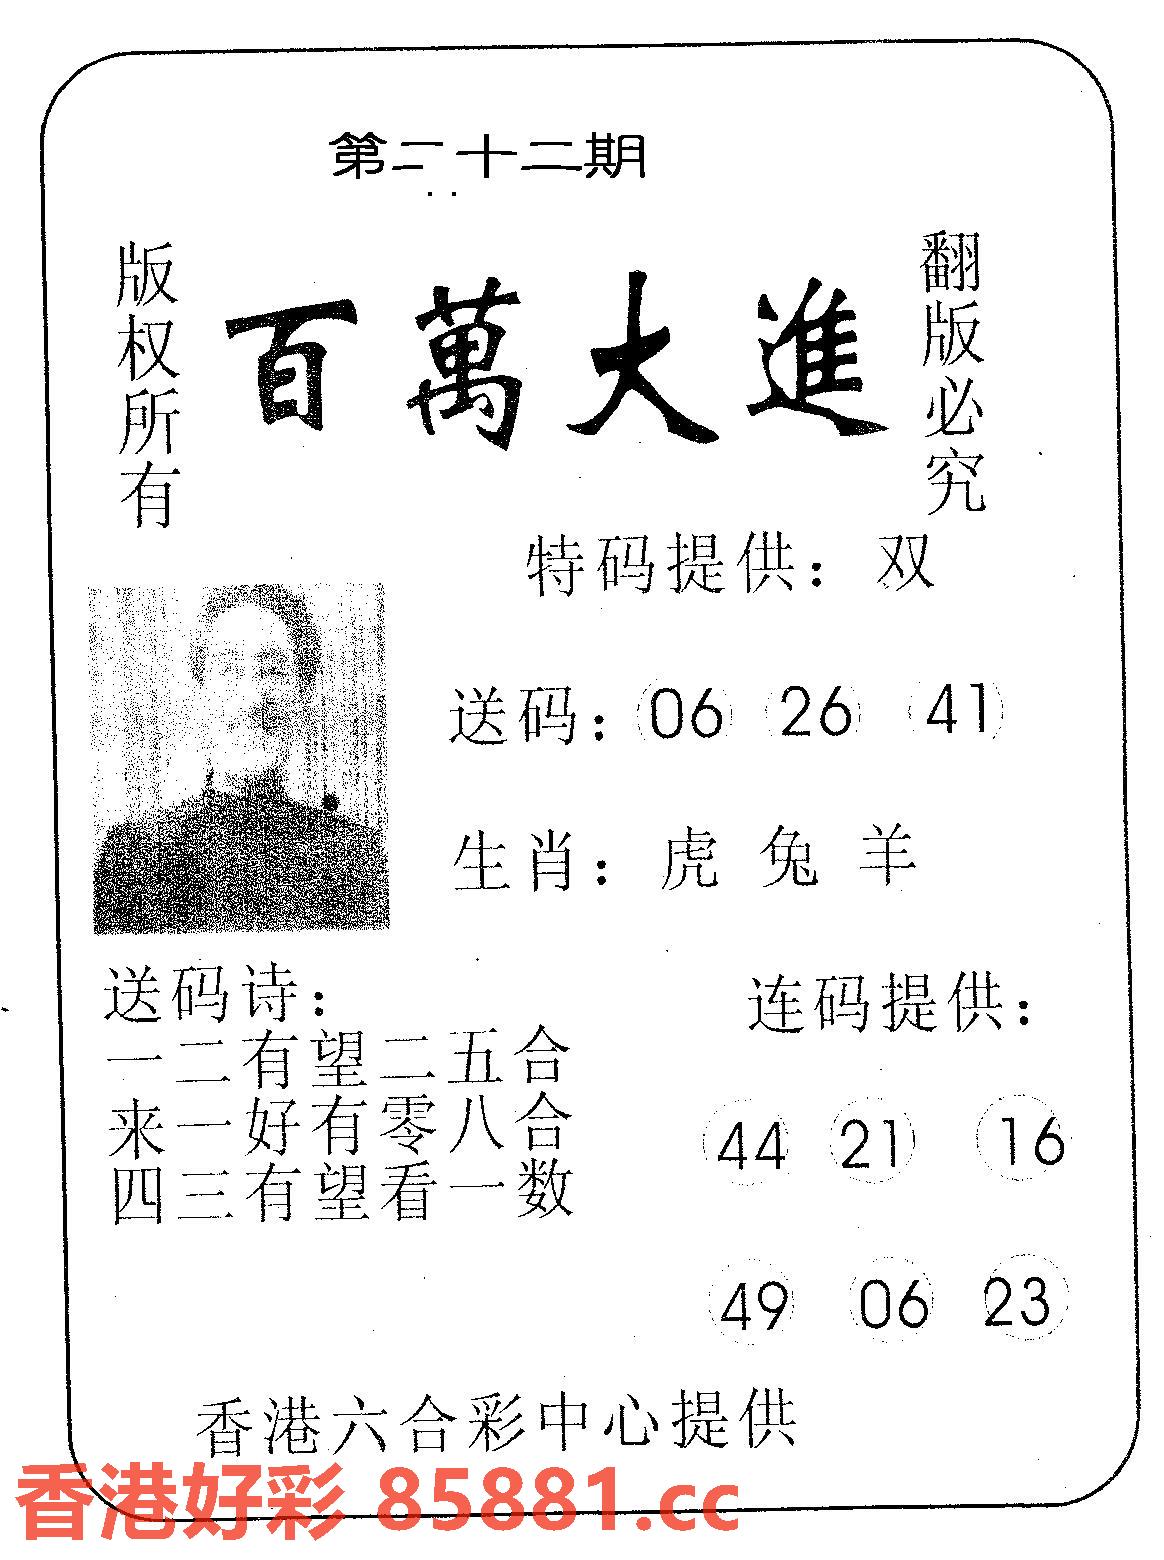 第二十二期
版权所有
百萬大進
翻版必究
特码提供：双
送码：06 26 41
生肖：虎 兔 羊
送码诗：
一二有望二五合
来一好有零八合
四三有望看一数
连码提供：
44 21 16
49 06 23
香港六合彩中心提供
香港好彩 85881.cc